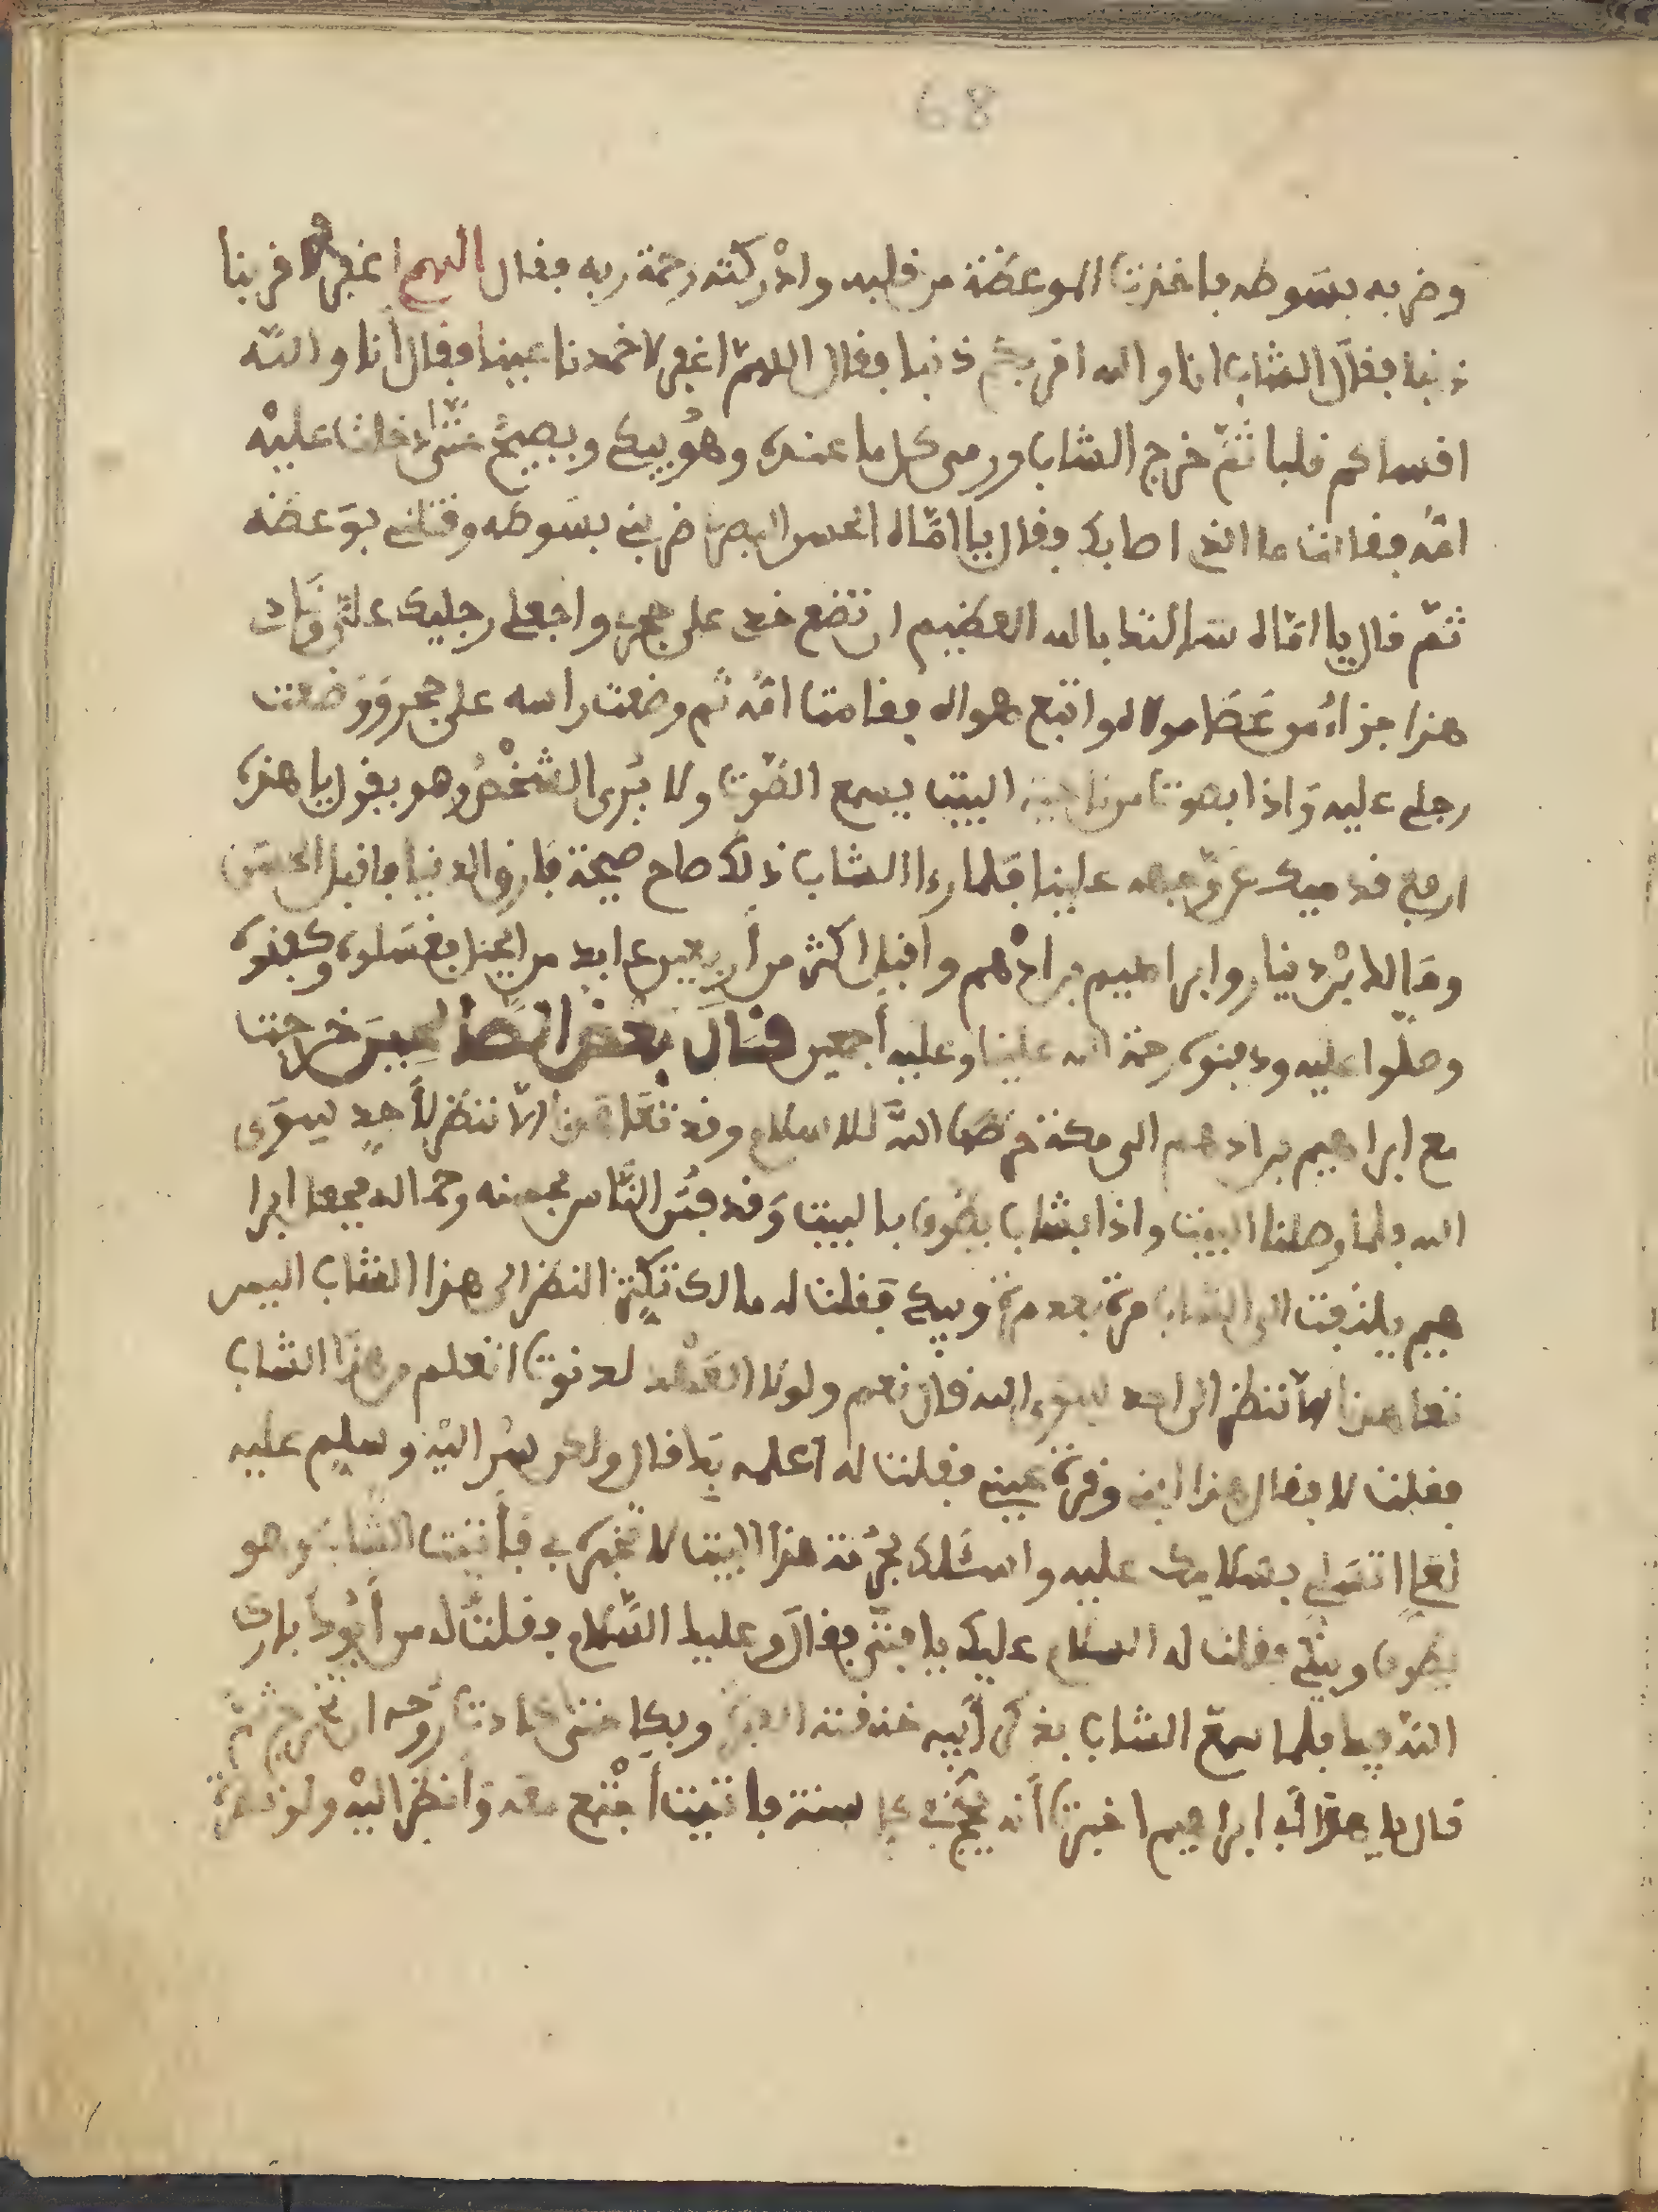 68
وضربه بسوطه فاخذت الموعضة من قلبه وادْركته رحمة ربه فقال اللهم اغفر لاقربنا
ذنبا فقال الشاب انا والله اقربكم ذنبا فقال اللهمّ اغفر لاخمدنا عينا وفقال أنا والله
اقساكم قلبا ثمّ خرج الشاب ورمى كل ما عنده وهو يبكي ويصيح حتّى دخلت عليْه
امّه فقالت ما الذي اصابك وفال يا امّاه الحسن البصري ضربني بسَوطه وقتلني بوَعضه
ثمّ قال يا امّاه سالتك بالله العضيم ان تضع خدي على حجر واجعلي رجليك على
هذا جزاءُ من عَصَا مولاه واتبع هواه فقامت امّه ثم وضعت راسه على حجر ووَضعت
رجلي عليه وَاذا بصوت من ناحية البيت يسمع الصّوت ولا يُرى الشخْصُ وهو يقول يا هذه
ارفعي قدميك عن وجهه علينا فلما رءا الشاب ذلك صاح صيحة فارق الدنيا فاقبل الحسَن
ومَالك بْن دينار وابراهيم بن ادْهم وأقبل اكثر من أربعين عابد من ايمنا فغسَلوه وكفنوه
وصلّوا عليه ودفنوه رحمة الله علينا وعليه أجمعين قالَ بَعْض الصَّالحِينَ خرجت
مع ابراهيم بن ادهم الى مكة وقد تعَاهدنا الاّ ننظر لأحدٍ سِوَى
الله فلما وصلنا البيت واذا بشاب يطُوف بالبيت وَقد فتن النَّاس بحسنه وجماله فجعل ابرا
هيم يلتفت الى الشاب مرة بعد مرّة ويبكي فقلت له مالك تكثر النظر الى هذا الشاب اليس
تعاهدنا الاّ ننظر الى احد سوى الله قال نعم ولولا العَهْد لدنوت اتعلم من هذا الشاب
فقلت لا فقال هذا ابني وقرة عيني فقلت له أعلمه بِك قال ولكن سِرْ اليْه وسلِم عليه
بسَلامِك عليه واسئلك بحُرْمة هذا البيت لا تخبره بي فأتيت الشاب وهو
يطوف ويبْكي فقلت له السلام عليك يا فتَى فقالَ وعليك السَّلام فقلتُ له من أبُوكَ بارك
اللّه فيك فلما سمع الشاب بذكر أبيه خنقته العبرة وبكا حتى كادت رُوحه ان تخرج ثمّ
قال يا هذا ابي ابراهيم اخبرت أنه يحُجّ في كل سنة فاتيت أجْتمع معه وَأنظر اليْه ولو نضرة